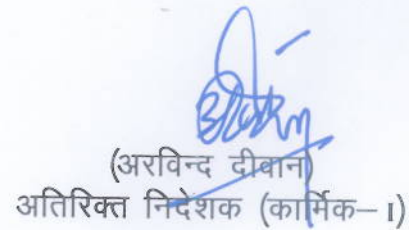 (अरविन्द दीवान)
अतिरिक्त निदेशक (कार्मिक–I)